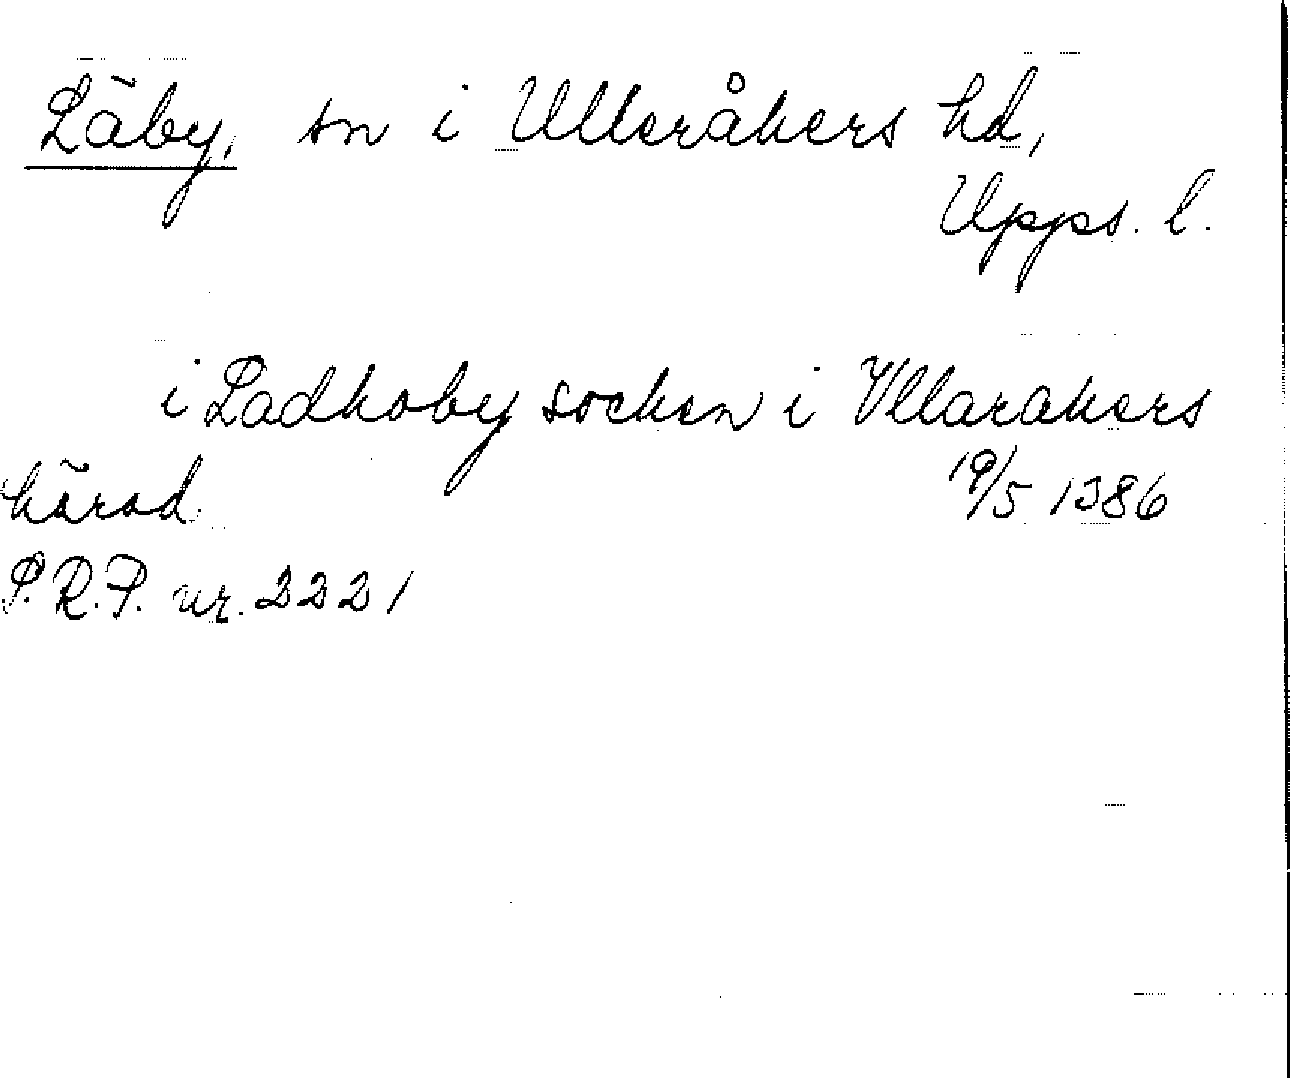 Läby, sn i Ulleråkers hd,
Upps. l.
i Ladhoby socken i Vllarakers
härad 19/5 1386
P.R.P. nr. 2221